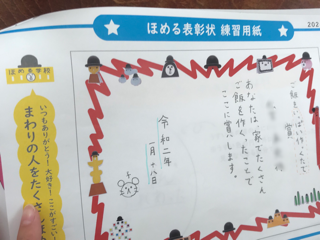 ほめる表彰状 練習用紙
202
ご飯をいっぱい作ったで
賞
あなたは家でたくさん
ご飯を作ったことで
ここに賞します。
令和二年
一月十八日
ほめ達学校
いつもありがとう！大好き！ここがすごい！
まわりの人をたくさん